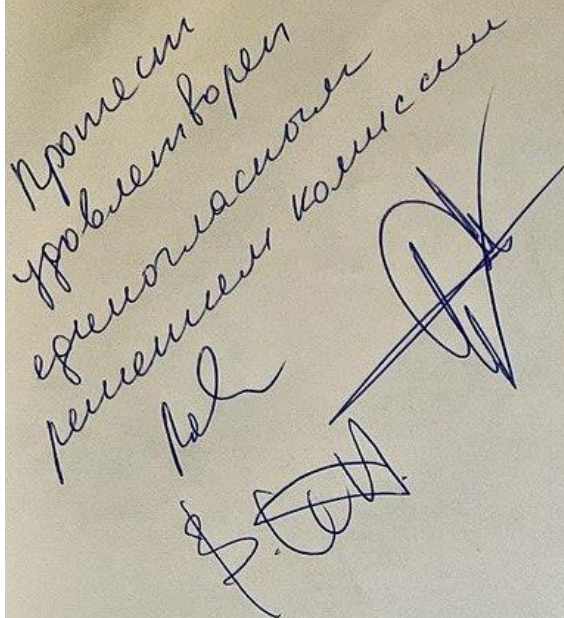 Протест
удовлетворен
единогласным
решением комиссии